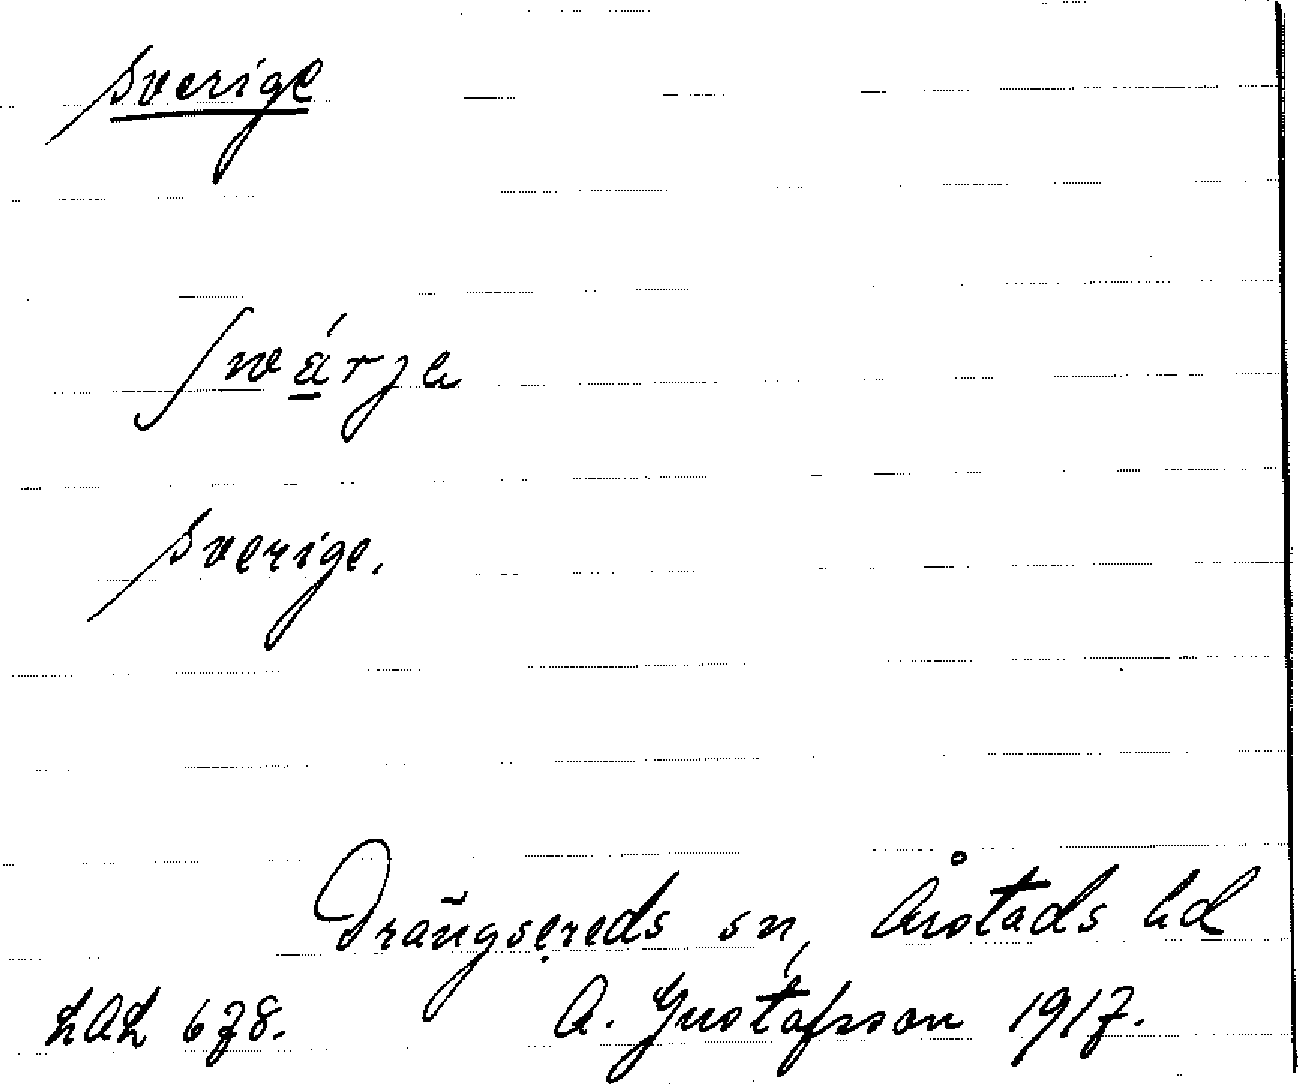 Sverige
swärje
Sverige.
Drängsereds sn, Årstads hd
LAL 678. A. Gustafsson 1917.